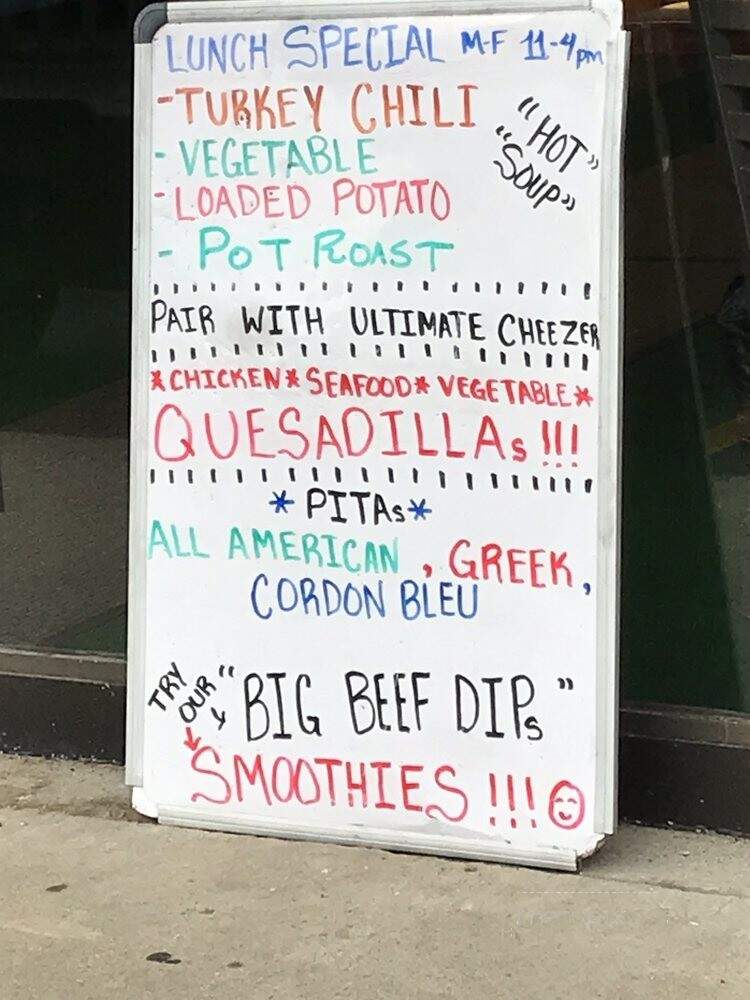 LUNCH SPECIAL M-F 11-4pm
-TURKEY CHILI
"HOT"
"SOUP"
- VEGETABLE
- LOADED POTATO
- POT ROAST
PAIR WITH ULTIMATE CHEEZER
*CHICKEN* SEAFOOD* VEGETABLE*
QUESADILLAs !!!
* PITAs*
ALL AMERICAN , GREEK,
CORDON BLEU
TRY OUR "BIG BEEF DIPs"
SMOOTHIES !!!